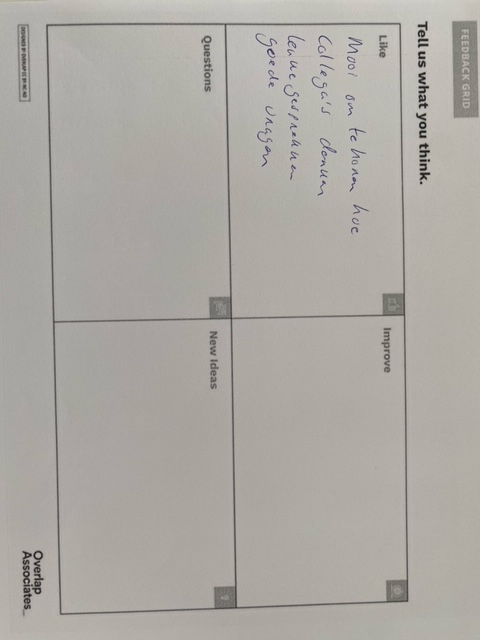 FEEDBACK GRID
Tell us what you think.
Like
Mooi om te horen hoe
Collega's denken
leuke gesprekken
goede vragen
Improve
Questions
New Ideas
Overlap
Associates_